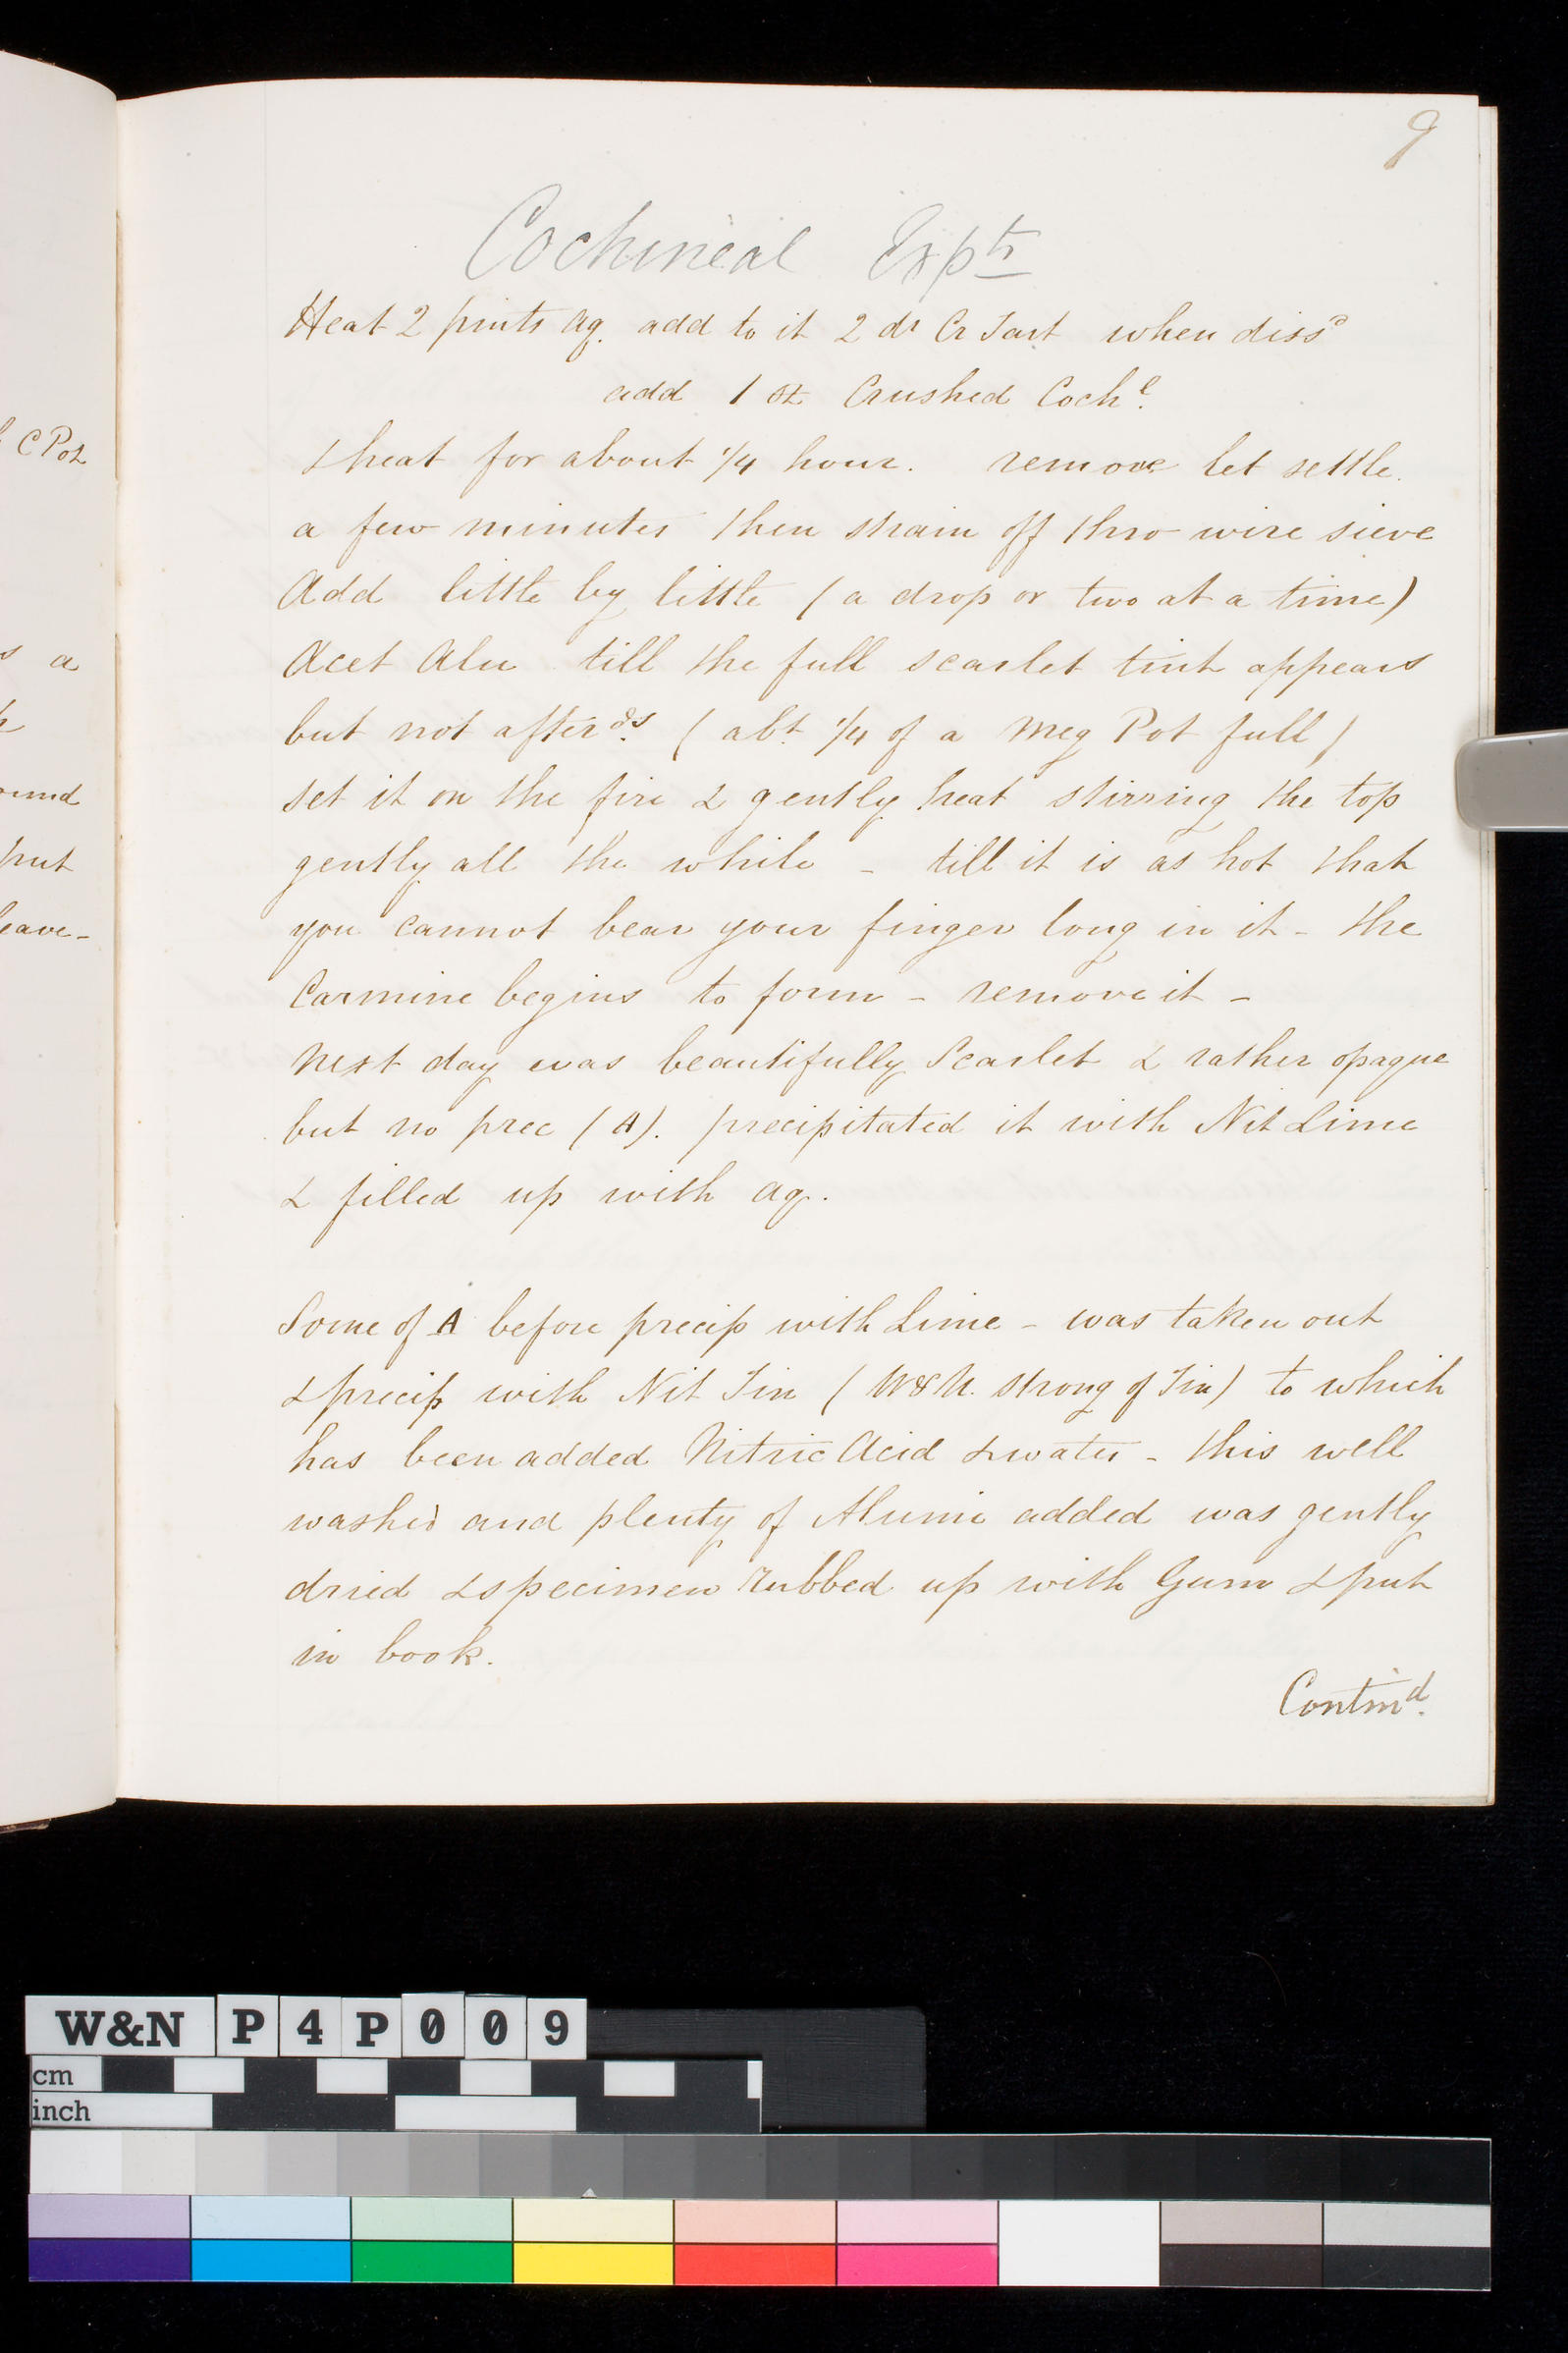 9
Cochineal Expts
Heat 2 pints aq. add to it 2 dr Cr Tart when dissd
add 1 oz Crushed Cochl.
& heat for about 1/4 hour. remove let settle.
a few minutes then strain off thro wire sieve
Add little by little (a drop or two at a time)
Acet Alu till the full scarlet tint appears
but not afterds. (abt 1/4 of a Meg Pot full)
set it on the fire & gently heat stirring the top
gently all the while - till it is as hot that
you cannot bear your finger long in it - the
Carmine begins to form - remove it -
Next day was beautifully Scarlet & rather opaque
but no prec (A). precipitated it with Nit Lime
& filled up with aq.
Some of A before precip with Lime - was taken out
& precip with Nit Tin (W&N. strong of Tin) to which
has been added Nitric Acid & water - this well
washed and plenty of Alumi added was gently
dried & specimen rubbed up with Gum & put
in book.
Contind.
C Pot
s a
ound
put
leave-
W&N P4P009
cm
inch